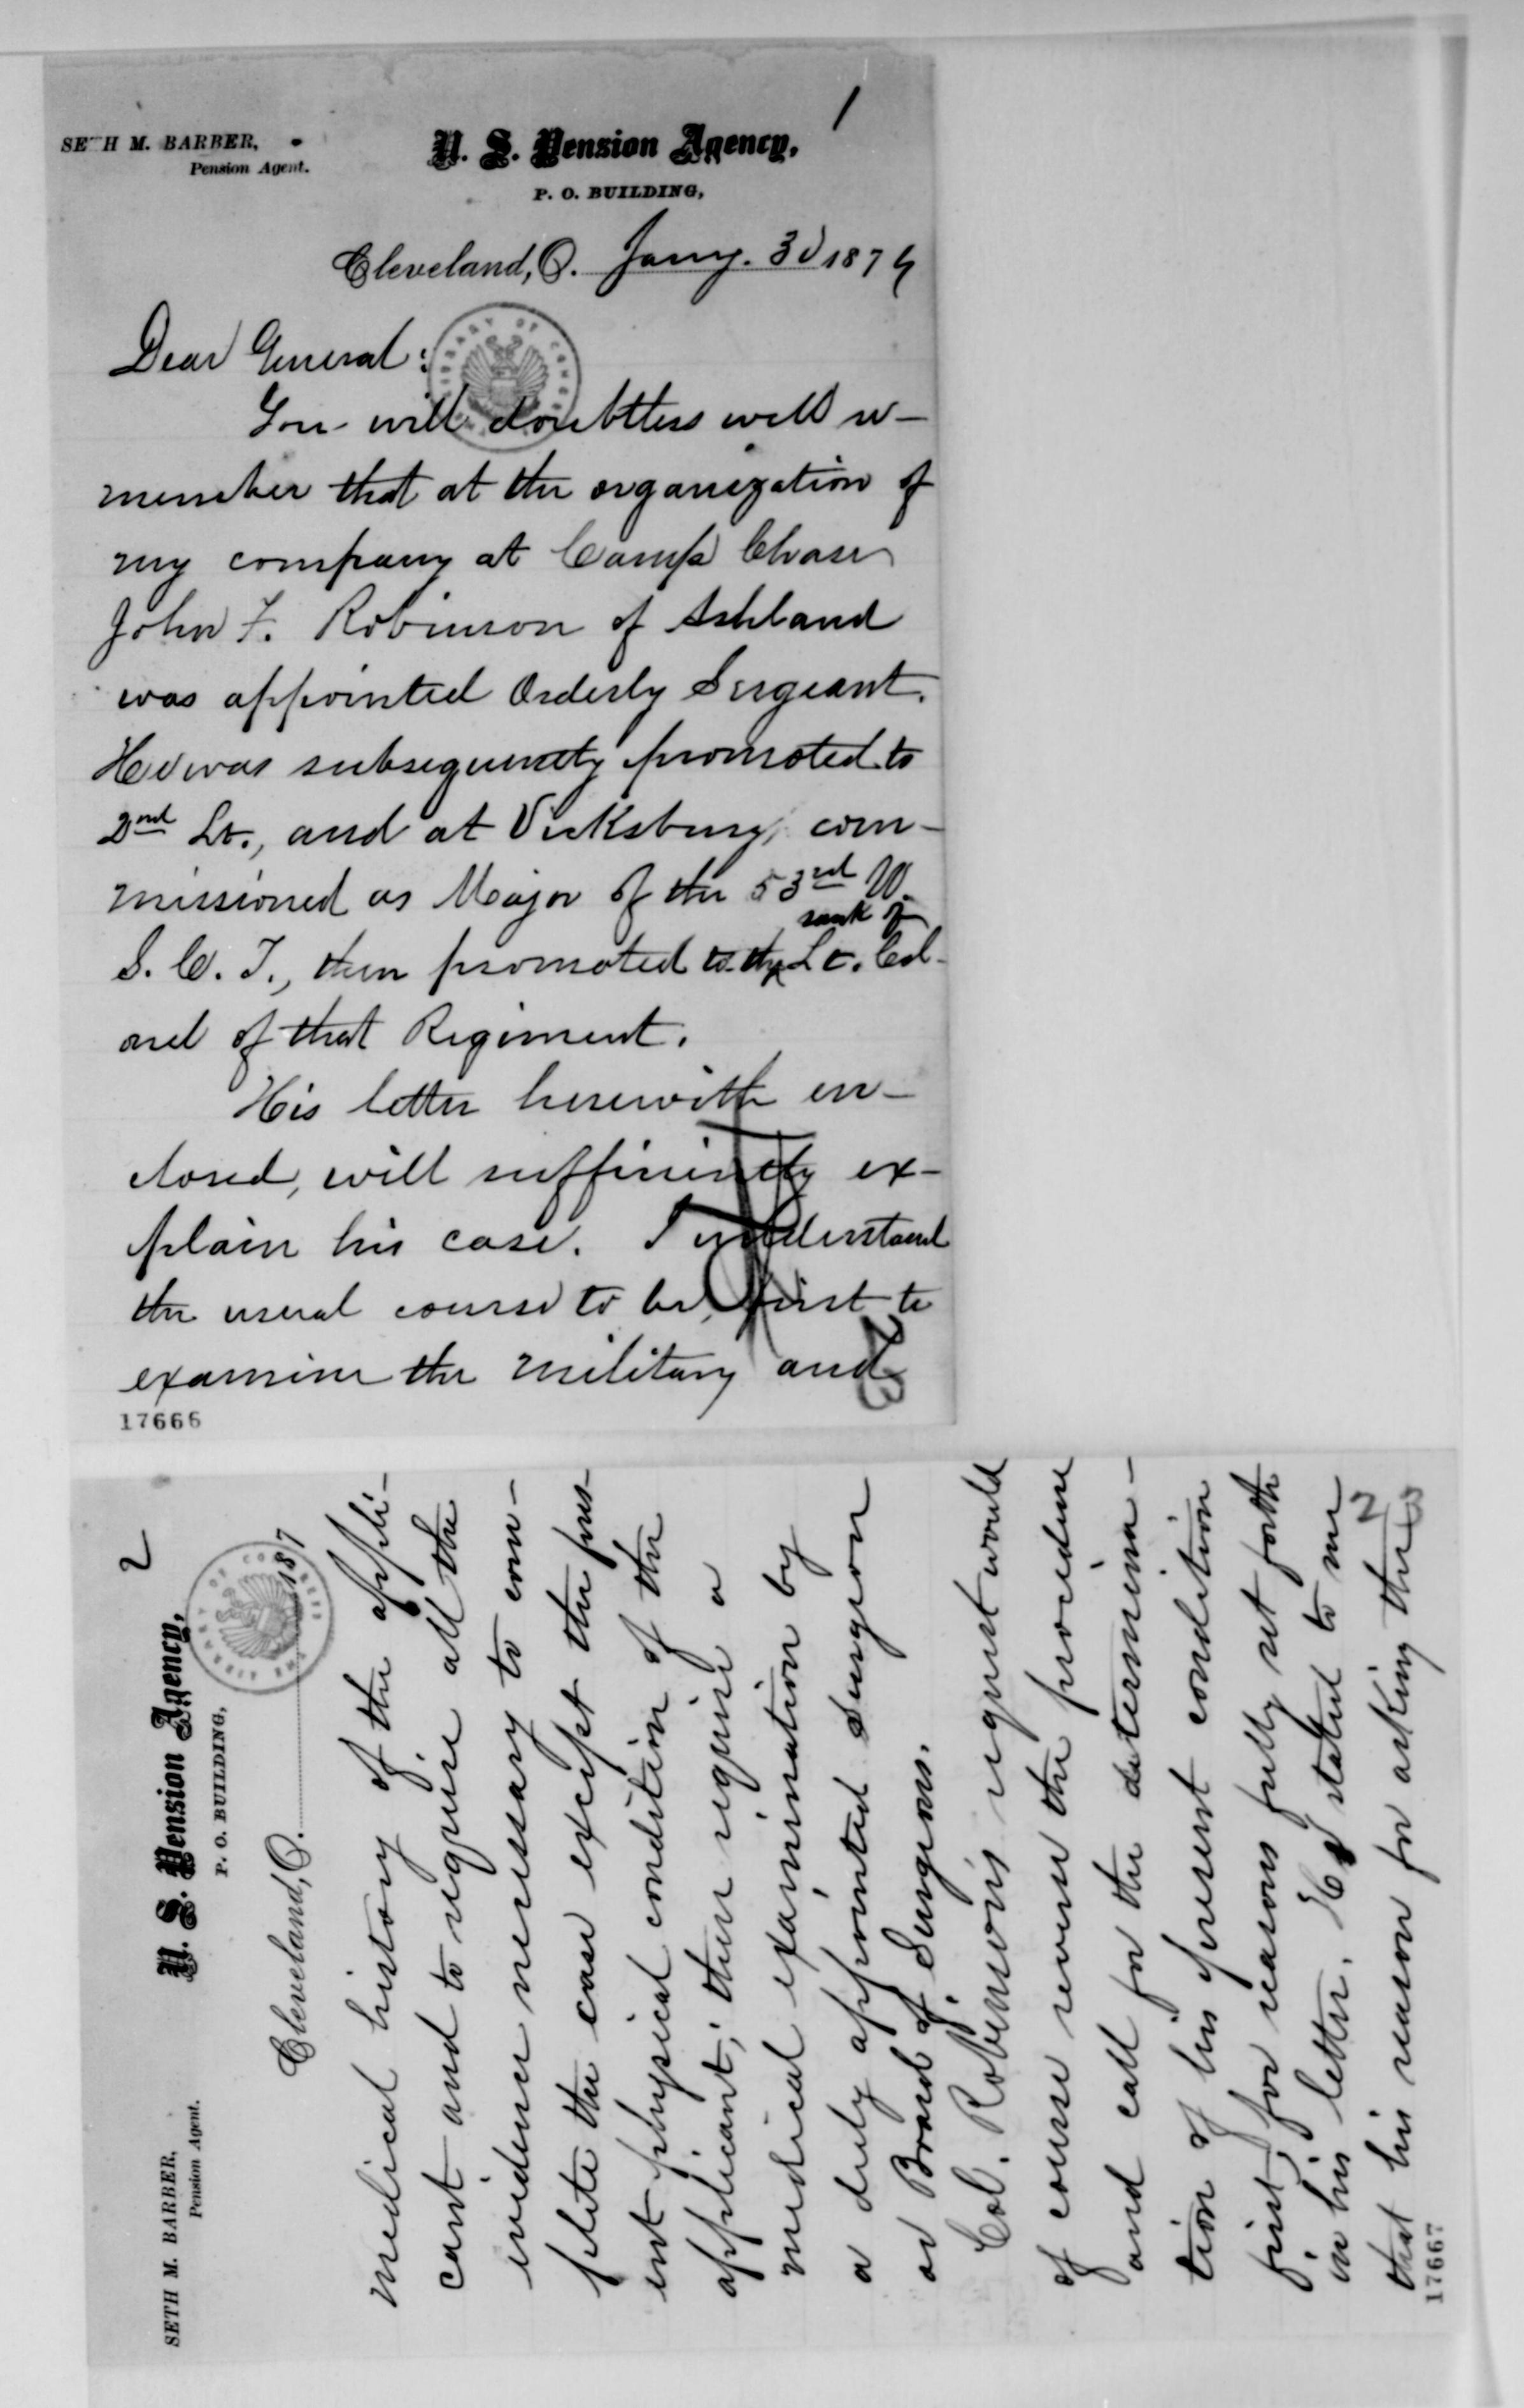 1
SETH M. BARBER,
Pension Agent.
U. S. Pension Agency,
P. O. BUILDING,
Cleveland, O. Jany. 3d 1876
Dear General:
You will doubtless well re-
member that at the organization of
my company at Camp Chase
John F. Robinson of Ashland
was appointed Orderly Sergeant.
He was subsequently promoted to
2nd Lt., and at Vicksburg, com-
missioned as Major of the 53rd U.
S. C. T., then promoted to the rank of Lt. Col-
onel of that Regiment.
His letter herewith en-
closed, will sufficiently ex-
plain his case. I understand
the usual course to be, first to
examine the military and
17666
2
SETH M. BARBER,
Pension Agent.
U. S. Pension Agency,
P. O. BUILDING,
Cleveland, O. 187
medical history of the appli-
cant and to require all the
evidence necessary to com-
plete the case except the pres-
ent physical condition of the
applicant; then require a
medical examination by
a duly appointed Surgeon
or Board of Surgeons.
Col. Robinson's request would
of course reverse the procedure
and call for the determina-
tion of his present condition
first, for reasons fully set forth
in his letter. He stated to me
that his reason for asking the
17667